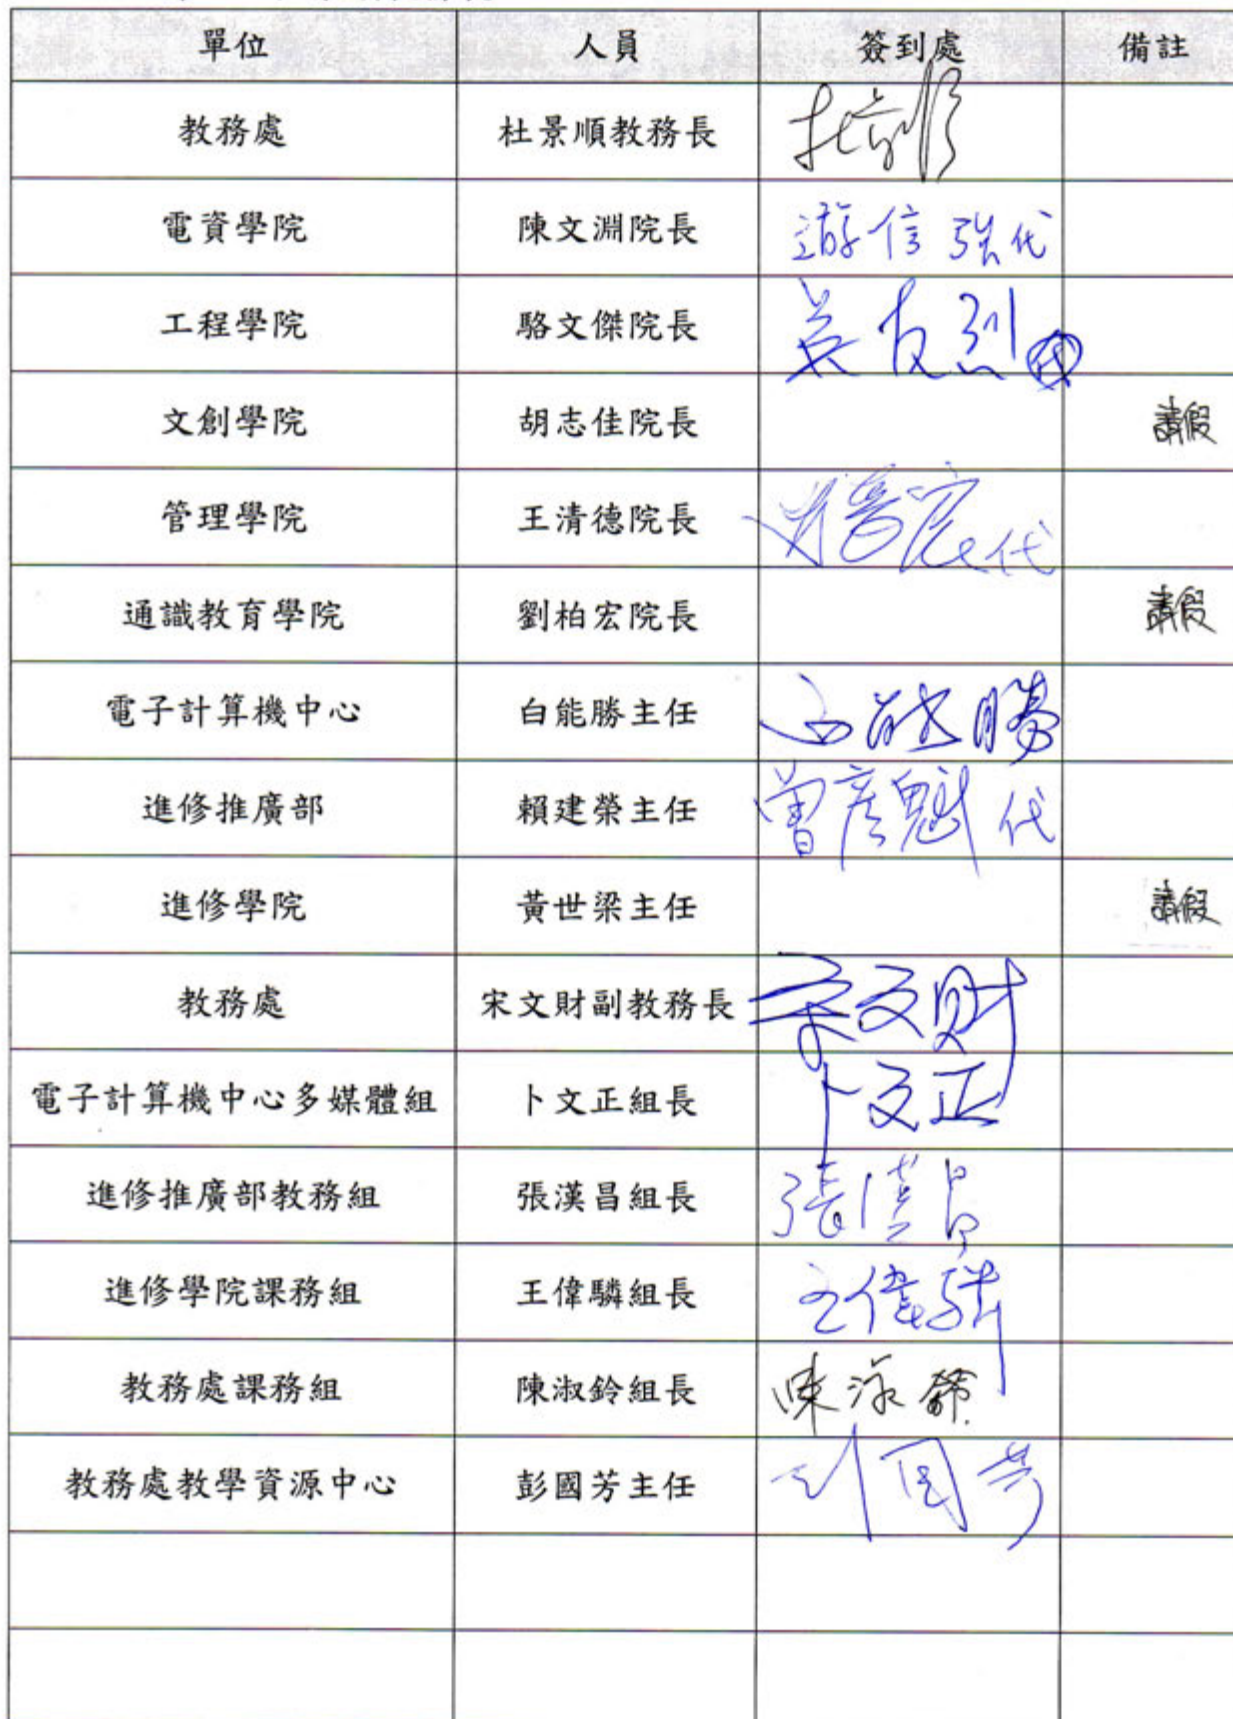 單位 人員 簽到處 備註
教務處 杜景順教務長 杜景順
電資學院 陳文淵院長 游信強代
工程學院 駱文傑院長 吳友烈代
文創學院 胡志佳院長 請假
管理學院 王清德院長 代
通識教育學院 劉柏宏院長 請假
電子計算機中心 白能勝主任 白能勝
進修推廣部 賴建榮主任 曾彥魁代
進修學院 黃世梁主任 請假
教務處 宋文財副教務長 宋文財
電子計算機中心多媒體組 卜文正組長 卜文正
進修推廣部教務組 張漢昌組長 張漢昌
進修學院課務組 王偉驎組長 王偉驎
教務處課務組 陳淑鈴組長 陳淑鈴
教務處教學資源中心 彭國芳主任 國芳